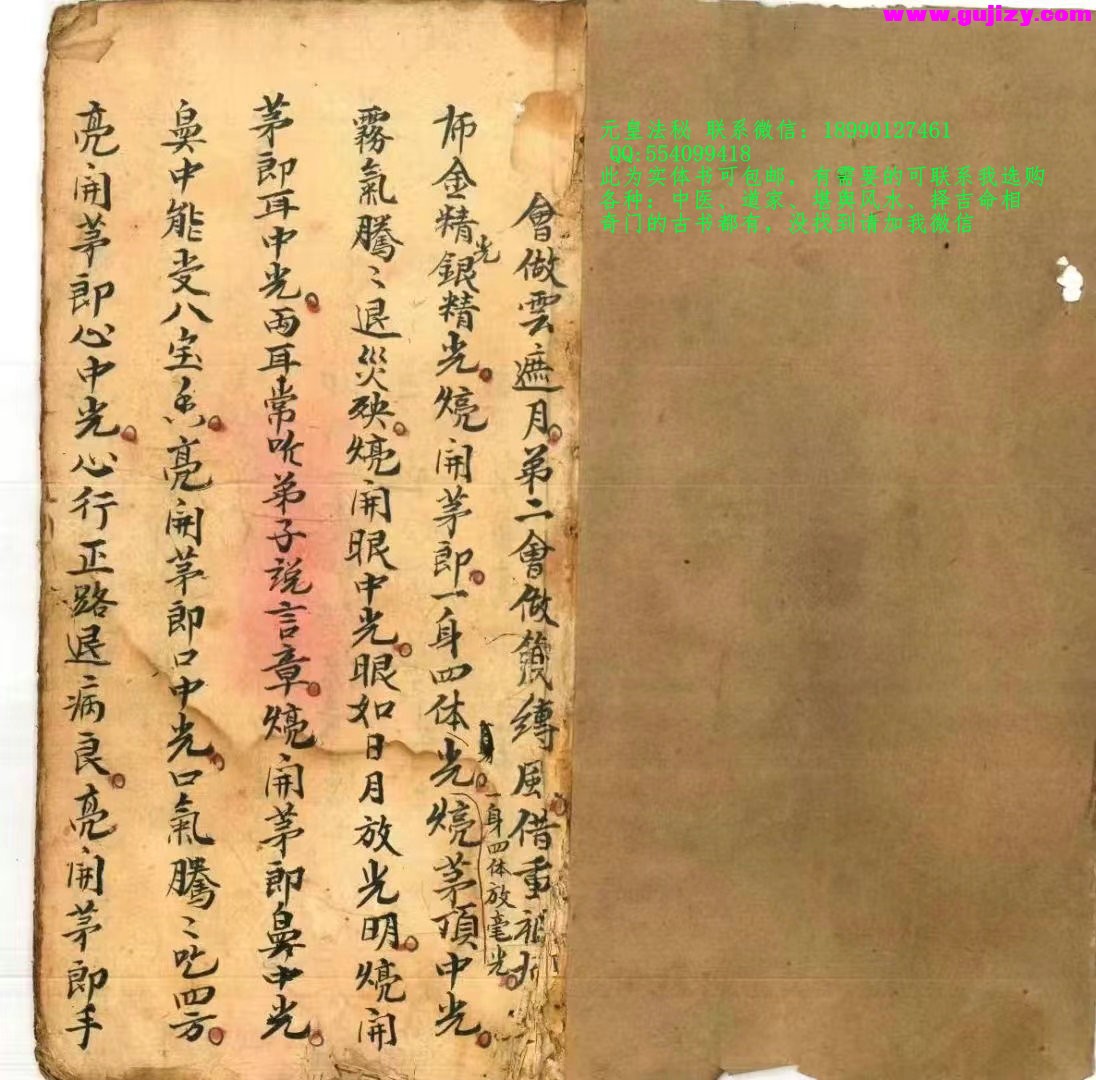 www.gujizy.com
元皇法秘 联系微信：18990127461
QQ:554099418
此为实体书可包邮，有需要的可联系我选购
各种：中医、道家、堪舆风水、择吉命相
奇门的古书都有，没找到请加我微信
會做雲遮月。第二會做 縛風。借重
身。一身四体放毫光。
师金精銀精光。熀開茅郎。一身四体光熀茅頂中光。
光
霧氣騰〻退災殃。熀開眼中光。眼如日月放光明。熀開
茅郎耳中光。兩耳常听弟子說言章。熀開茅郎鼻中光。
鼻中能受八宝香。亮開茅郎口中光。口氣騰〻吃四方。
亮開茅郎心中光。心行正路退病良。亮開茅郎手